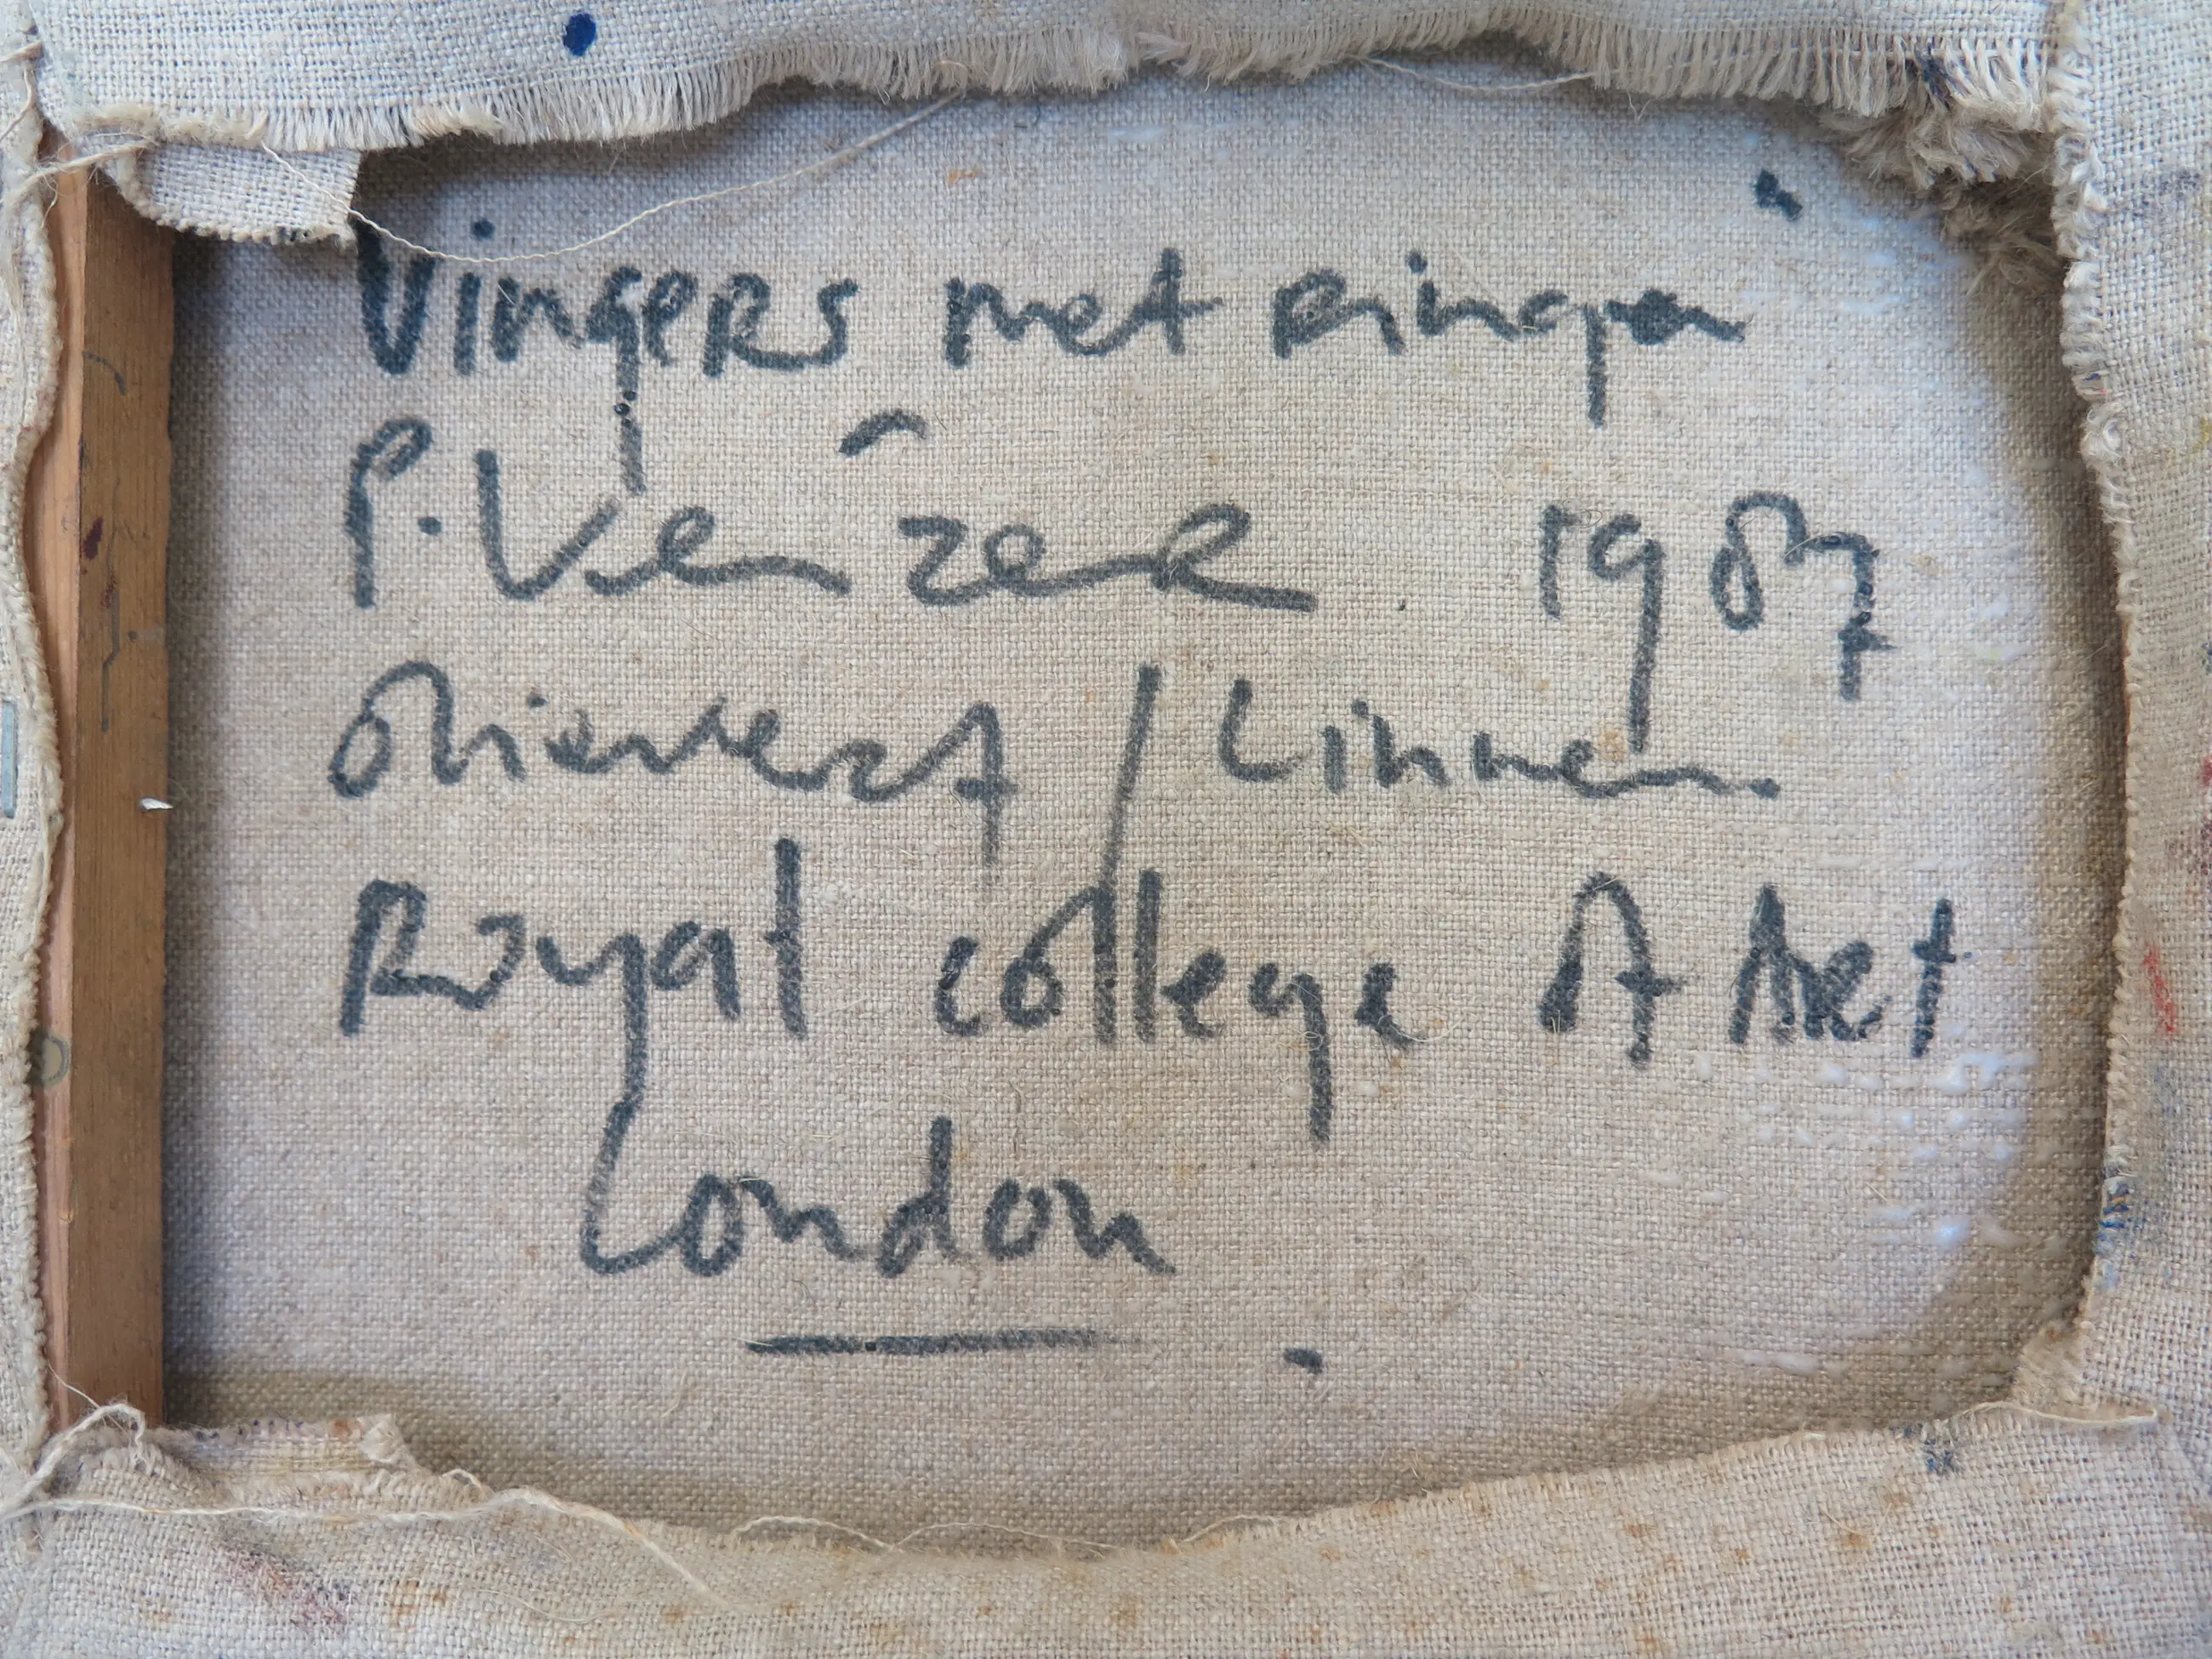 Vingers met ringen
P. 1987
olieverf / Linnen.
Royal college of Art
London